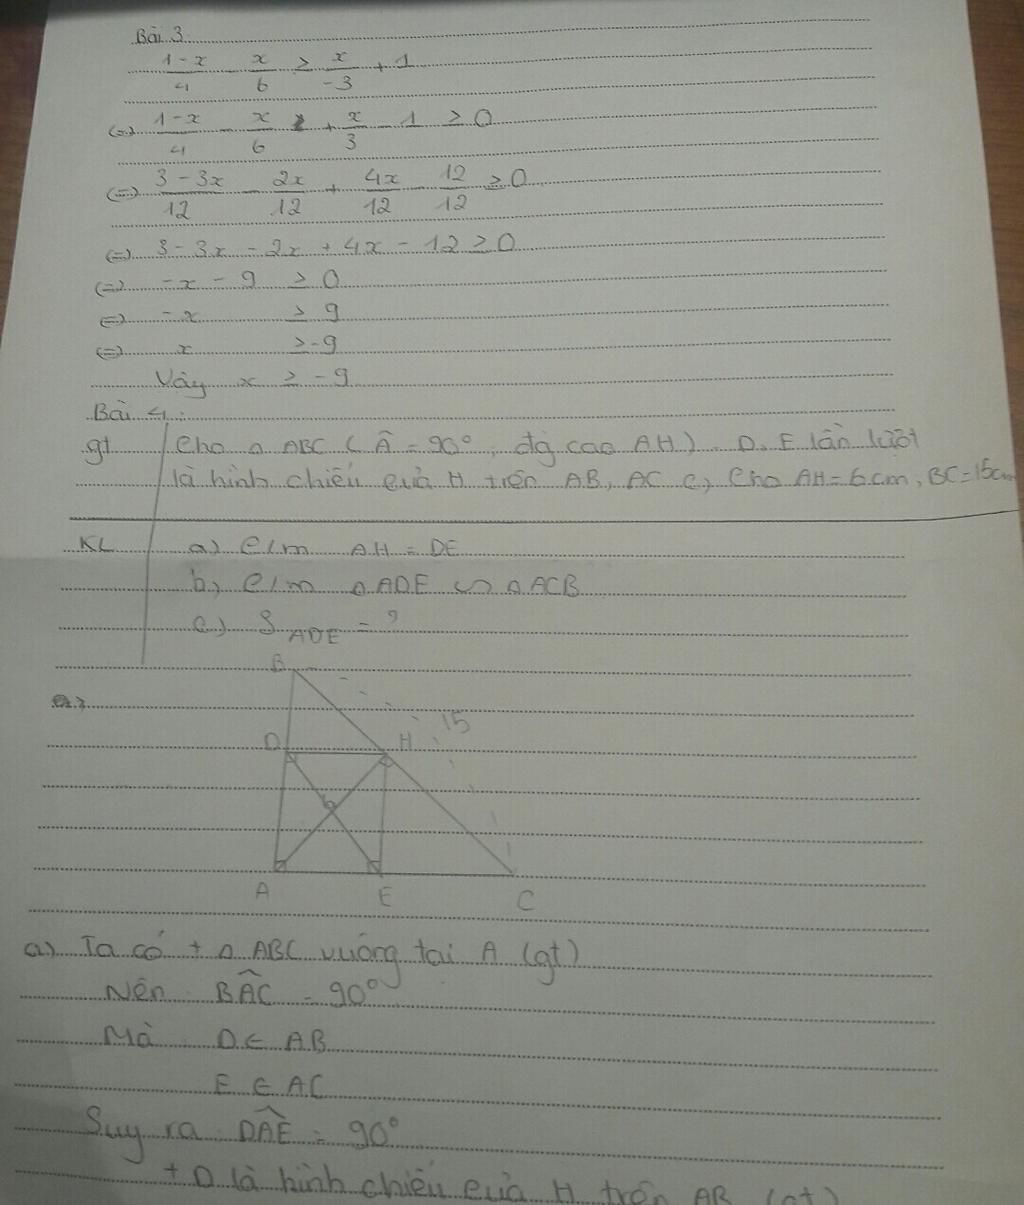 Bài 3
1-x/4 - x/6 ≥ x/-3 + 1
(=) 1-x/4 - x/6 + x/3 - 1 ≥ 0
(=) 3-3x/12 - 2x/12 + 4x/12 - 12/12 ≥ 0
(=) 3-3x-2x+4x-12 ≥ 0
(=) -x-9 ≥ 0
(=) -x ≥ 9
(=) x ≥ -9
Vậy x ≥ -9
Bài 4:
gt Cho △ ABC (Â = 90°, đg cao AH). D, E lần lượt
là hình chiếu của H trên AB, AC c, Cho AH = 6 cm, BC = 15cm
KL a) c/m AH = DE
b, c/m △ ADE ∽ △ ACB
c) S ADE = ?
B
15
D H
6
A E C
a) Ta có + △ ABC vuông tại A (gt)
Nên BÂC = 90°
Mà D ∈ AB
E ∈ AC
Suy ra DÂE = 90°
+ D là hình chiếu của H trên AB (gt)